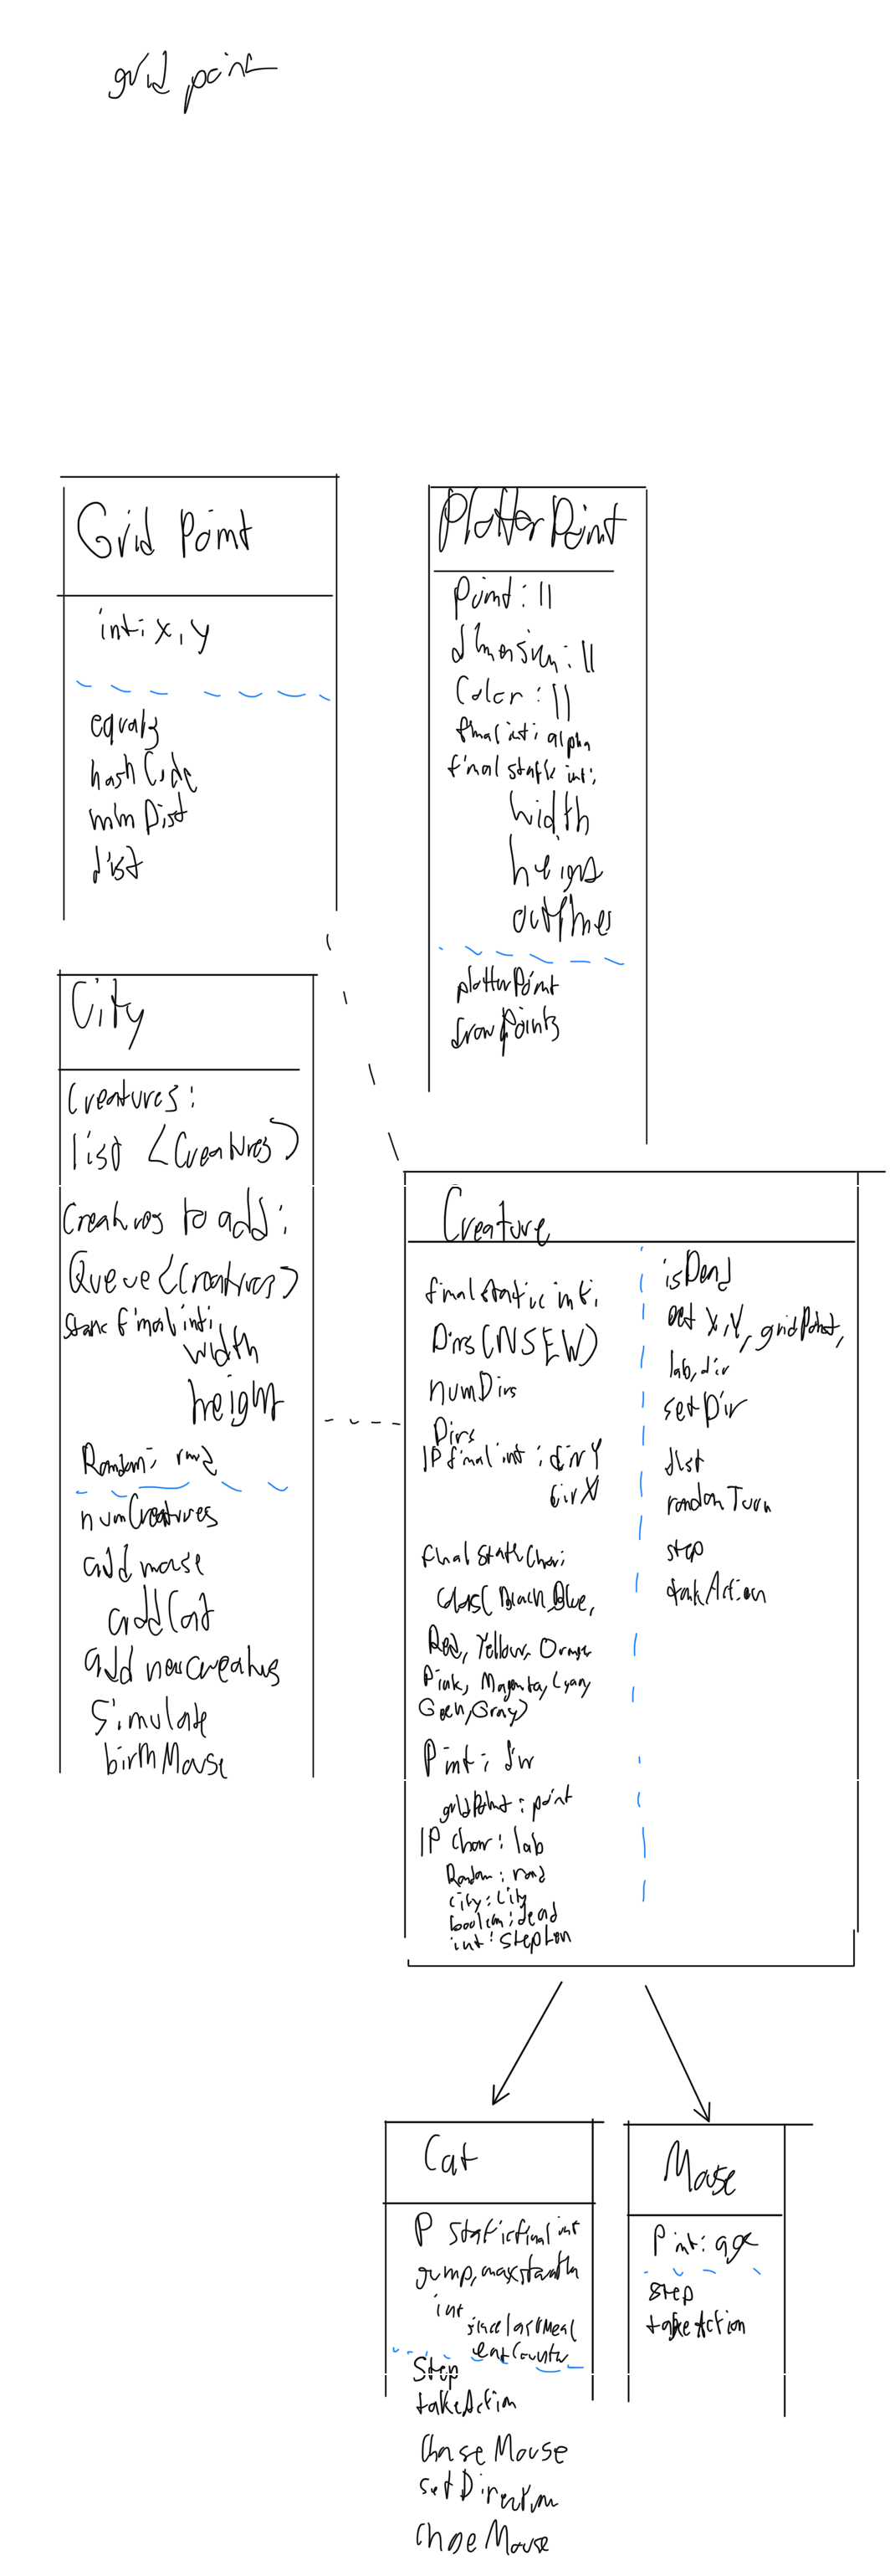 grid point
Grid Point
int: x, y
equals
hashCode
min Dist
dist
PlotterPoint
Point: ||
dimension: ||
Color: ||
final int: alpha
final static int:
width
heigns
outlines
plotterPoint
drawPoints
City
Creatures:
list <Creatures>
Creatures to add:
Queue <Creatures>
Static final int:
width
height
Random: rand
numCreatures
add mouse
add Cat
add new creatures
Simulate
birthMouse
Creature
final static int:
Dirs (NSEW)
numDirs
Dirs
IP final int: dirY
dirX
final static Char:
Colors( Black, Blue,
Red, Yellow, Orange
Pink, Magenta, Cyan,
Green, Gray)
P int: dir
gridPoint: point
IP char: lab
Random: rand
city: City
boolean: dead
int: stepLen
isDead
get X, Y, gridPoint,
lab, dir
setDir
dist
randomTurn
step
takeAction
Cat
P static final int
jump, maxstarttim
int
sincelastMeal
eatCounter
Step
takeAction
Chase Mouse
setDirection
Chase Mouse
Mouse
P int: age
step
takeAction